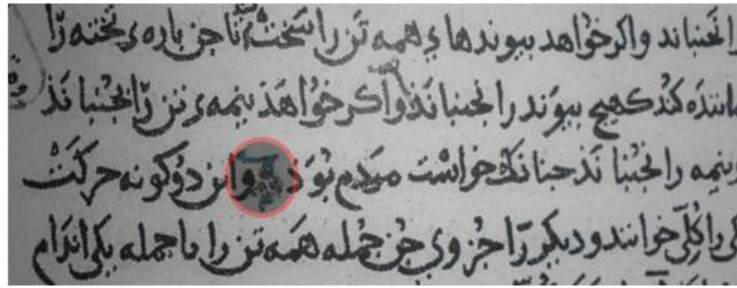 را نجنباند و اکر خواهد بیوندهاءِ همه تن را سخت تا جن باره ءِ تخته را
ماننده کند کهیچ بیوند را نجنباند و اکر خواهذ بنمهءِ تن را نجنباند
و بنمه را نجنباند جنانک خواست مردم بوذ و این دو کونه حرکت
یکی را کلّی خوانند و دیکر را جزوی جن جمله همه تن را یا جمله یکی اندام